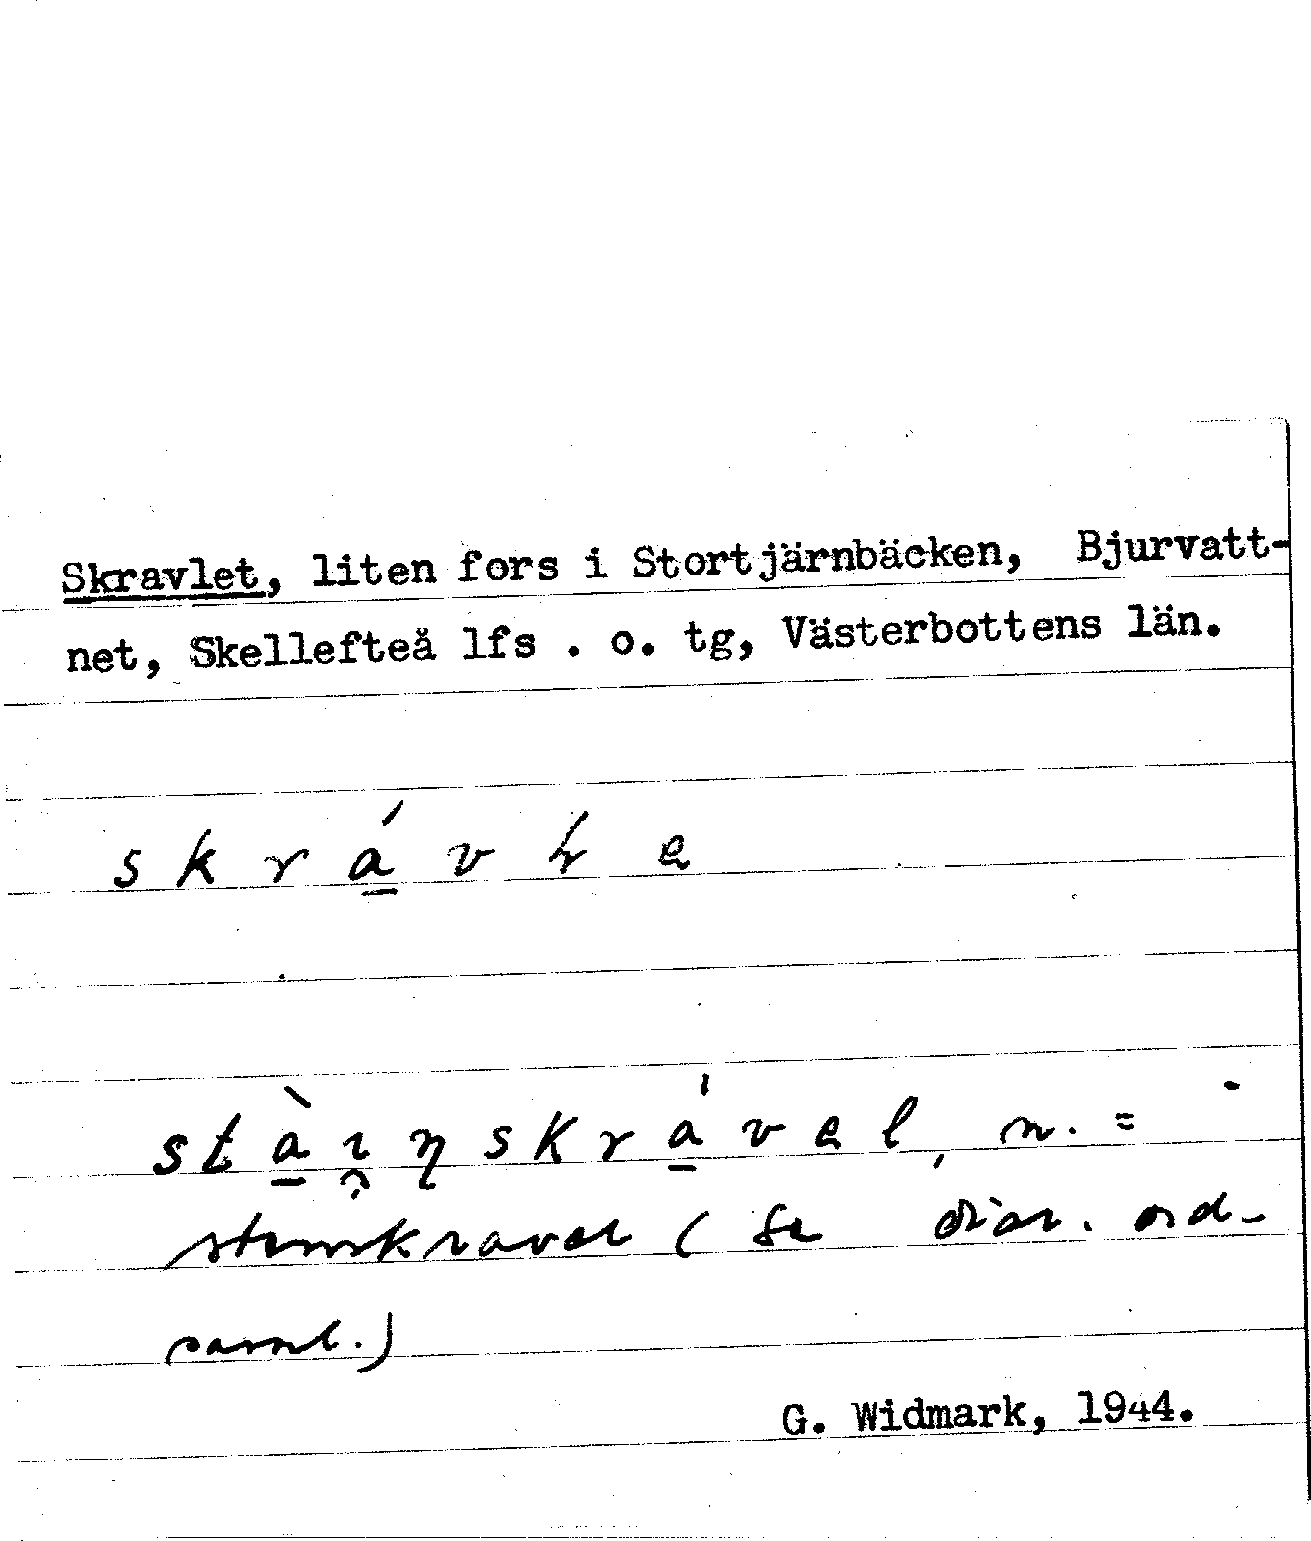 Skravlet, liten fors i Stortjärnbäcken, Bjurvatt-
net, Skellefteå lfs . o. tg, Västerbottens län.
skrá̲vɬe
stà̲ı̯ŋskrá̲vel, n. =
stenskravel (se diar. ord-
saml.)
G. Widmark, 1944.